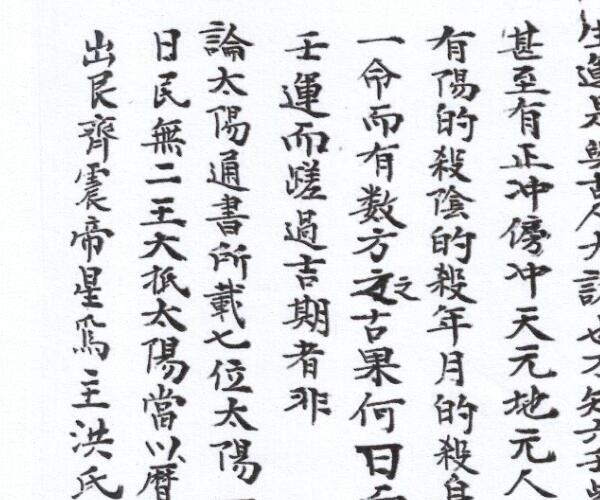 生運是與古人大訣也不知六壬
甚至有正冲傍冲天元地元人
有陽的殺陰的殺年月的殺
一命而有数方之古果何曰
壬運而蹉過吉期者非
論太陽通書所載七位太陽
日民無二王大抵太陽當以曆
出艮齊震帝星爲主洪氏